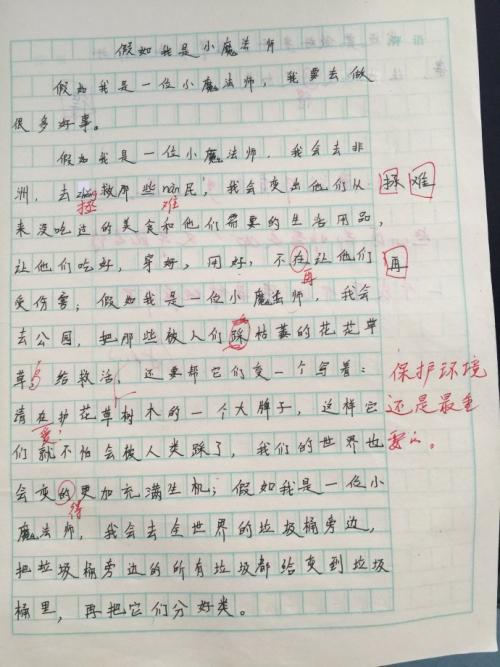 假如我是小魔法师
假如我是一位小魔法师，我要去做
很多好事。
假如我是一位小魔法师，我会去非
洲，去zhěng救那些nàn民，我会变出他们从 拯 难
拯 难
来没吃过的美食和他们需要的生活用品，
让他们吃好，穿好，用好，不在让他们 再
再
受伤害；假如我是一位小魔法师，我会
去公园，把那些被人们踩枯萎的花花草
草给救治，还要帮它们变一个写着： 保护环境
请爱护花草树木的一个大牌子，这样它 还是最重
爱
们就不怕会被人类踩了，我们的世界也 要的。
会变的更加充满生机；假如我是一位小
得
魔法师，我会去全世界的垃圾桶旁边，
把垃圾桶旁边的所有垃圾都给变到垃圾
桶里，再把它们分好类。